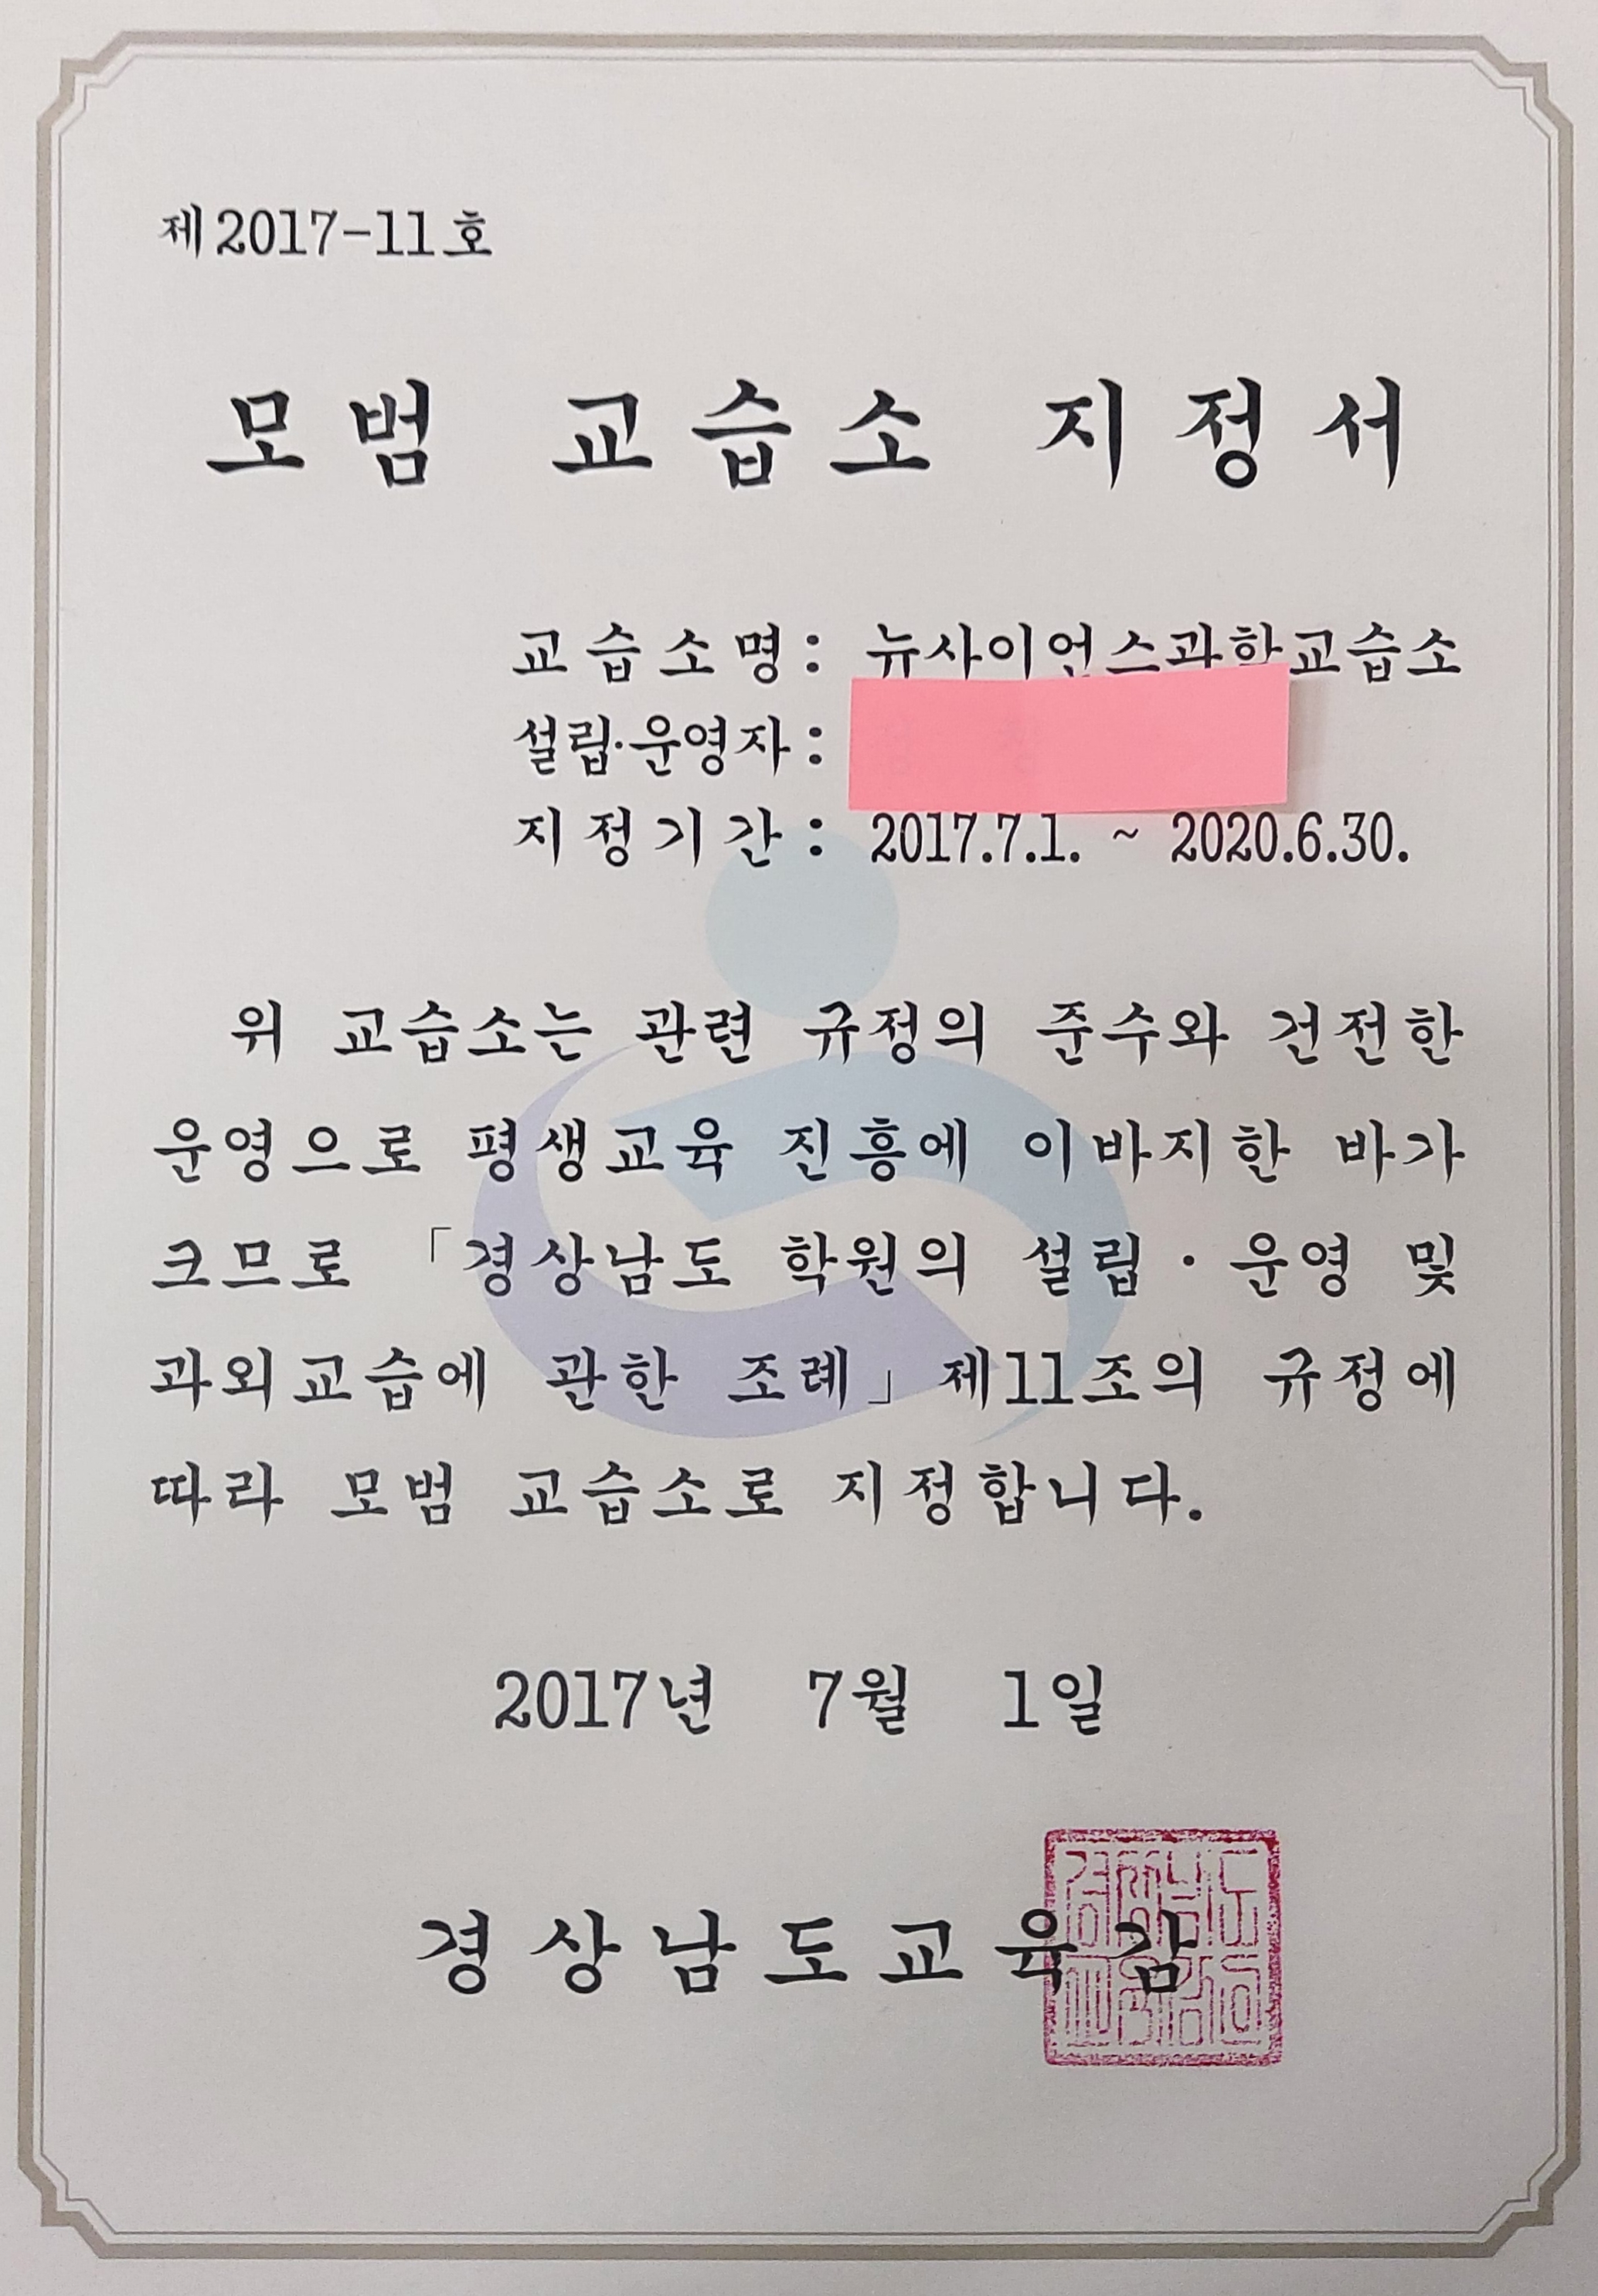 제2017-11호
모범 교습소 지정서
교습소명: 뉴사이언스과학교습소
설립·운영자:
지정기간: 2017.7.1. ~ 2020.6.30.
위 교습소는 관련 규정의 준수와 건전한
운영으로 평생교육 진흥에 이바지한 바가
크므로 「경상남도 학원의 설립 · 운영 및
과외교습에 관한 조례」제11조의 규정에
따라 모범 교습소로 지정합니다.
2017년 7월 1일
경상남도교육감